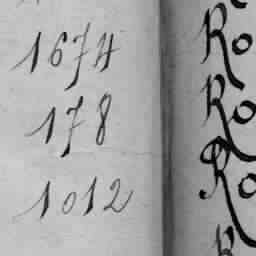 1674
178
1012
Ro
Ro
Ro
R